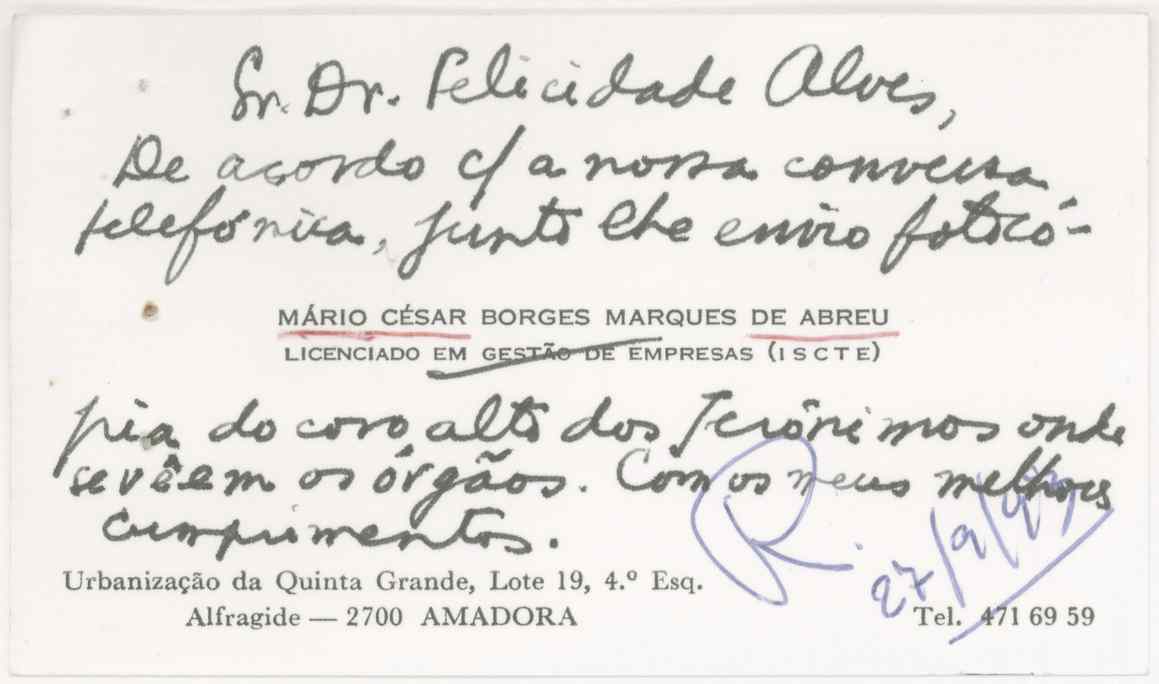 Sr. Dr. Felicidade Alves,
De acordo c/ a nossa conversa
telefónica, junto lhe envio fotocó-
MÁRIO CÉSAR BORGES MARQUES DE ABREU
LICENCIADO EM GESTÃO DE EMPRESAS (ISCTE)
pia do coro alto dos Jerónimos onde
se vêem os órgãos. Com os meus melhores
cumprimentos.
R.
27/9/
Urbanização da Quinta Grande, Lote 19, 4.º Esq.
Alfragide — 2700 AMADORA
Tel. 471 69 59